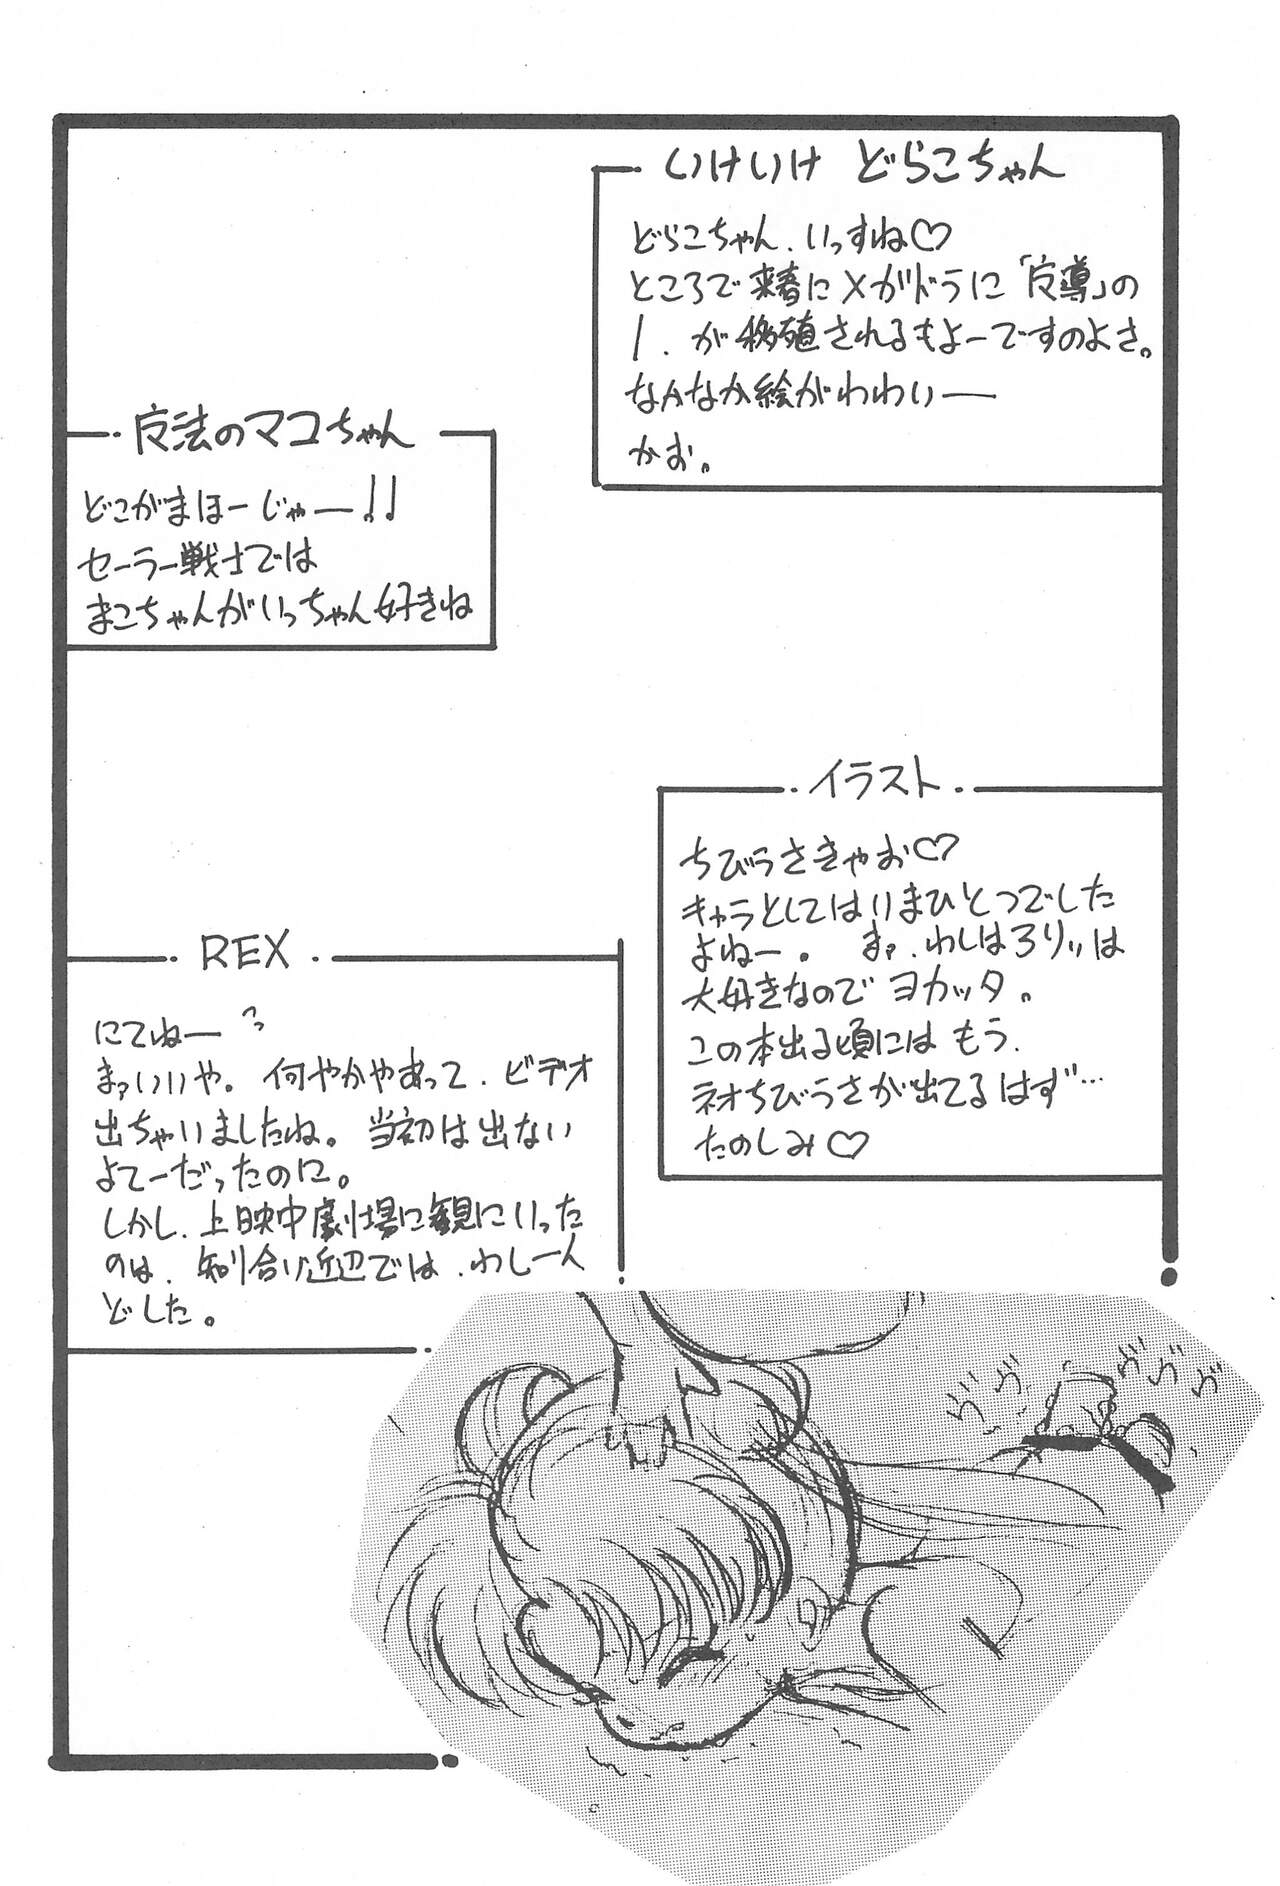 いけいけ どらこちゃん
どらこちゃん、いっすね♡
ところで来春にメガドラに「广導」の
1.が移殖されるもよーですのよさ。
なかなか絵がわわいー
かお。
广法のマコちゃん
どこがまほーじゃー!!
セーラー戦士では
まこちゃんがいっちゃん好きね
イラスト
ちびうさきゃお♡
キャラとしてはいまひとつでした
よねー。 まァ、わしはろりぃは
大好きなのでヨカッタ。
この本出る頃にはもう、
ネオちびうさが出てるはず…
たのしみ♡
REX
にてねーっ
まァいいや。何やかやあって、ビデオ
出ちゃいましたね。当初は出ない
よてーだったのに。
しかし、上映中劇場に観にいった
のは、知り合い近辺では、わし一人
どした。
ヴヴ ヴヴヴ